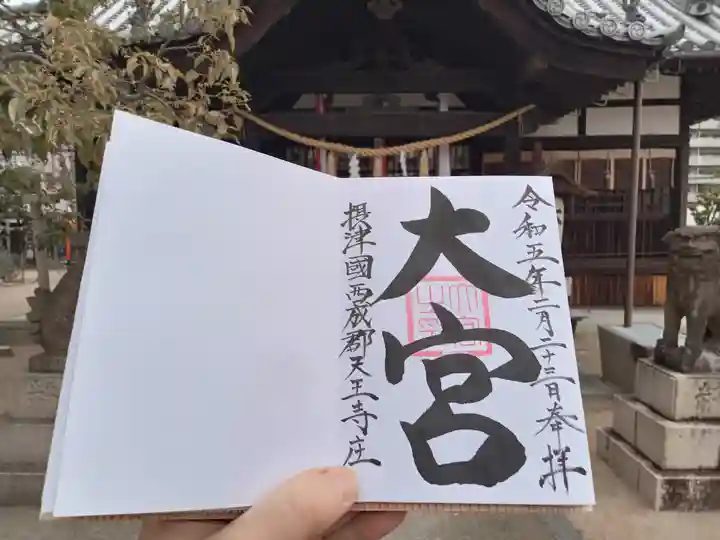 令和五年二月二十三日奉拜
大宮
摂津國西成郡天王寺庄